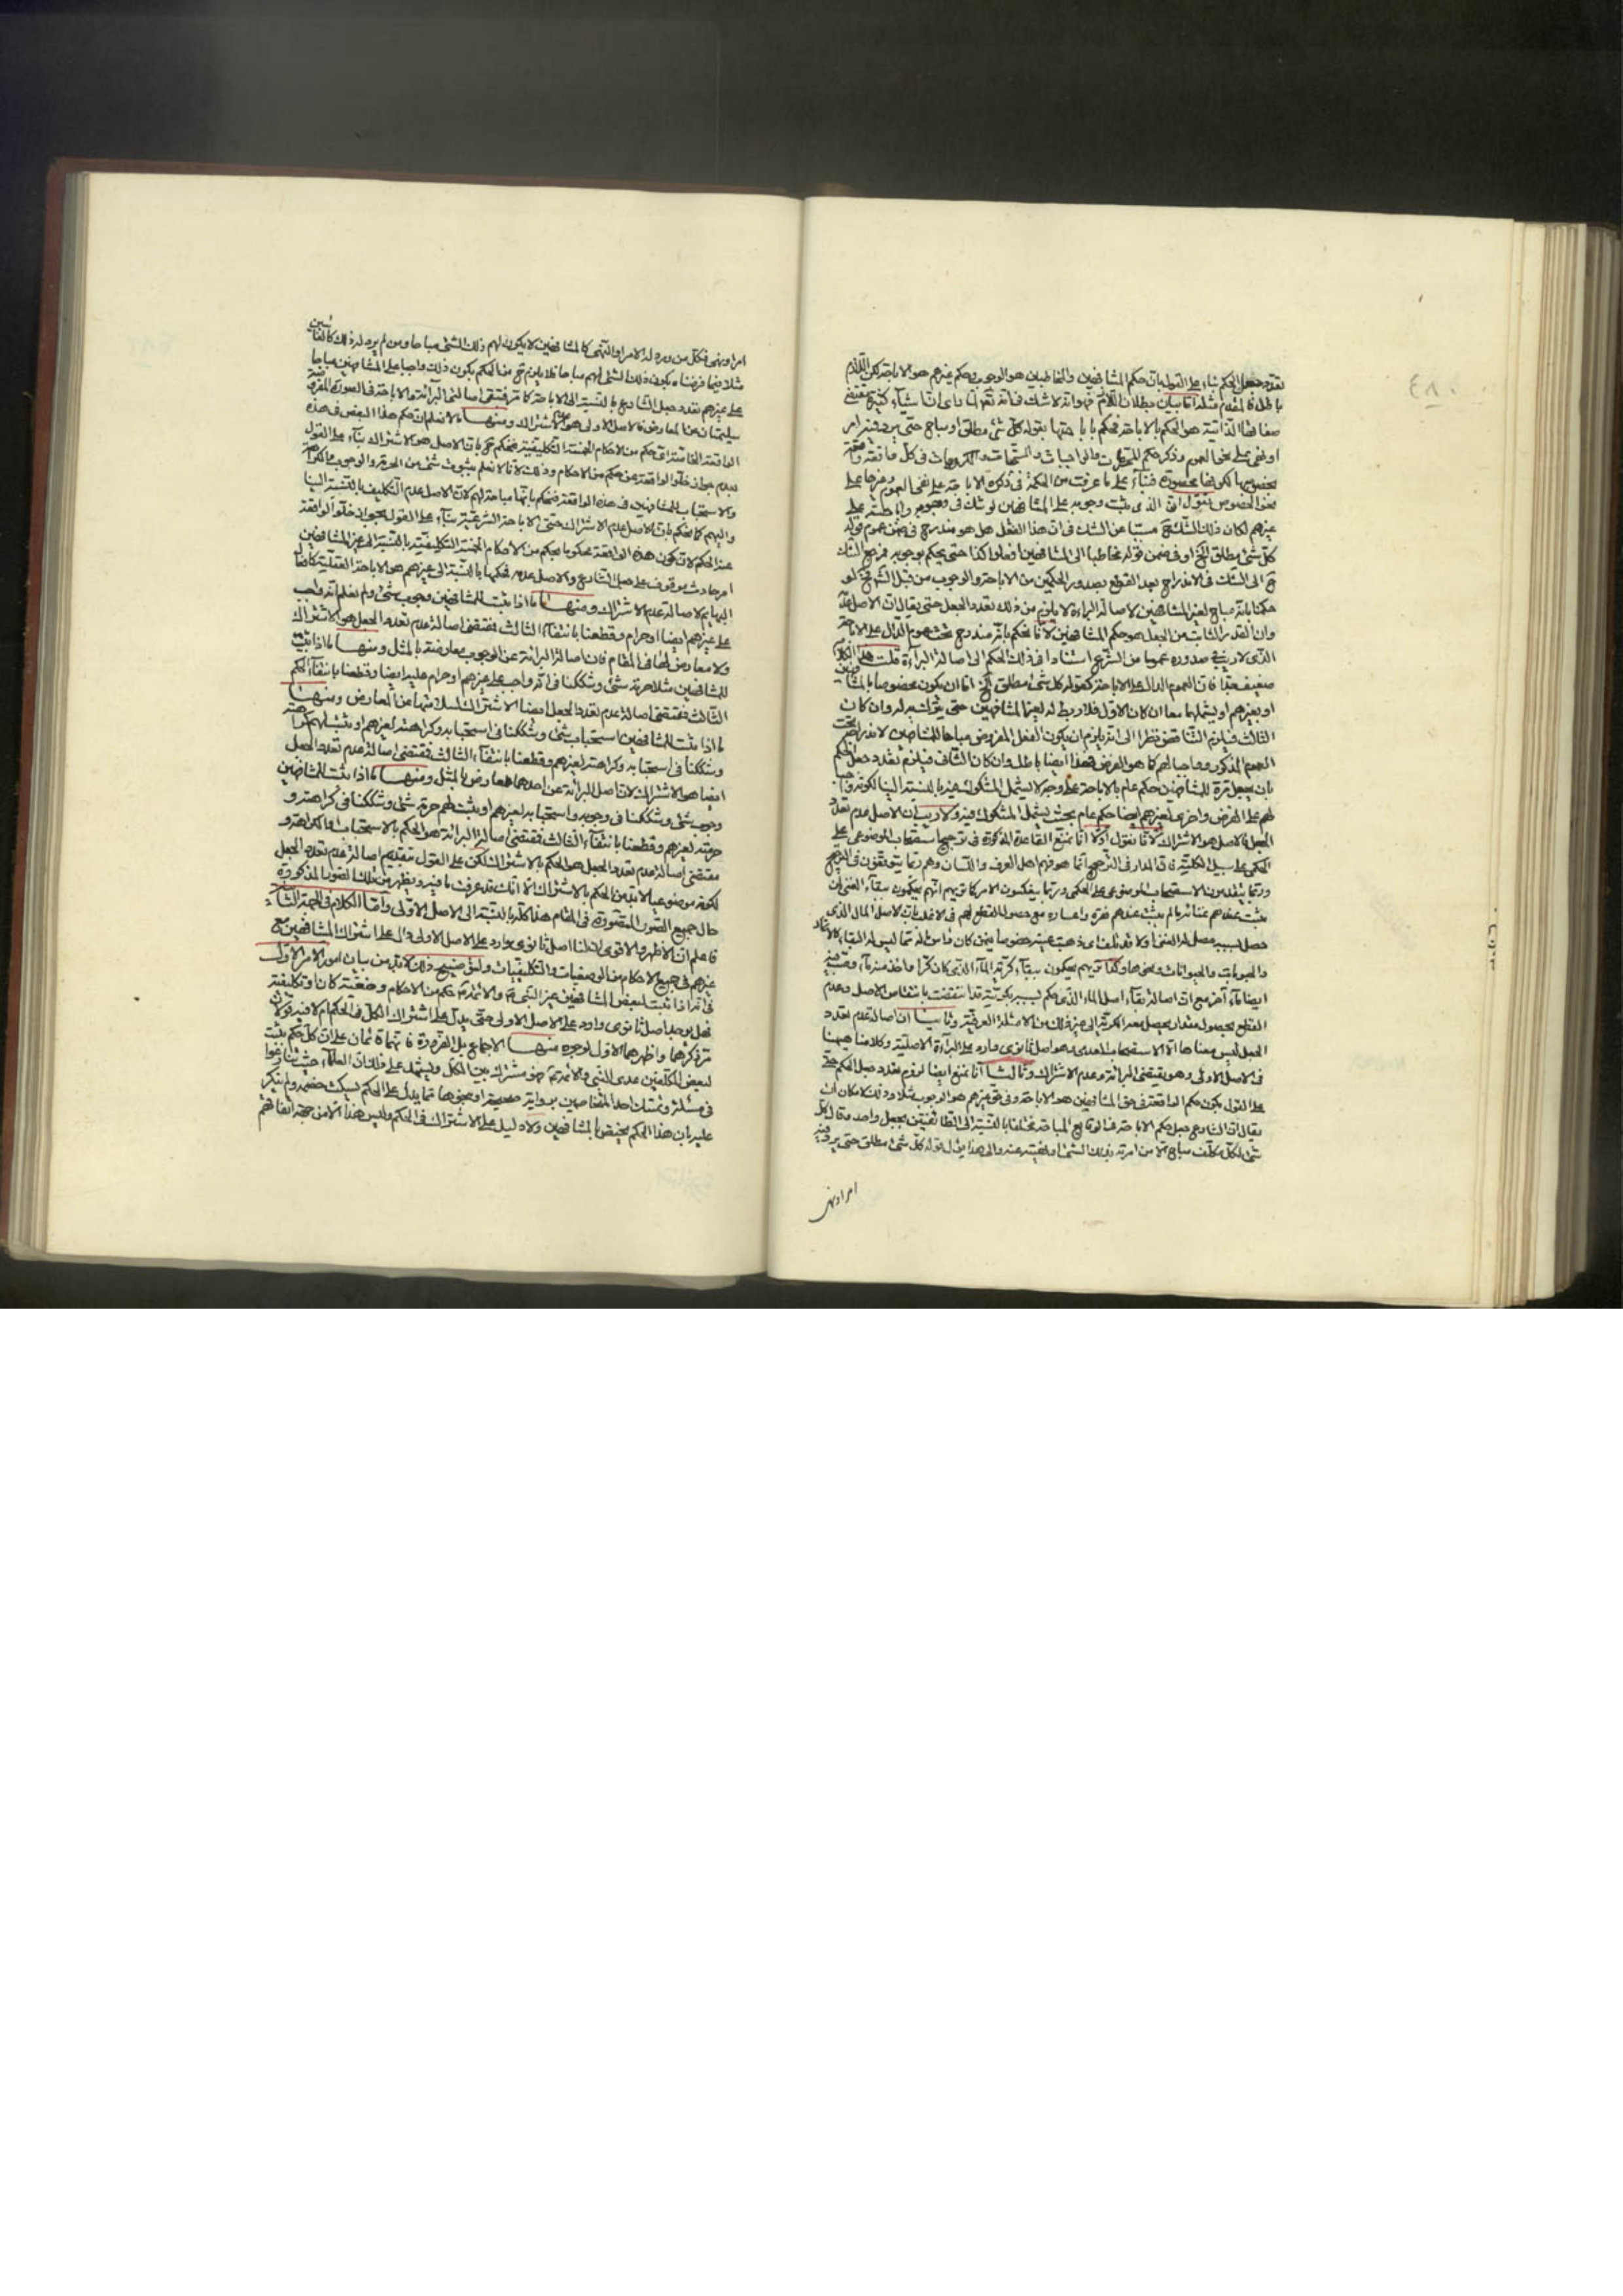 تعدد جعل الحكم بناء على القول بان حكم المشافهين والمخاطبين هو الوجوب وحكم غيرهم هو الاباحة لكن اللازم
باطل فالملزوم مثله اما بيان بطلان اللازم فهو انه لاشك فى انه تعالى راى ان اشياء كثيرة مقتضى
صفاتها الذاتية هو الحكم بالاباحة فحكم باباحتها بقوله كل شئ مطلق او مباح حتى يرد فيه امر
او نهى على نحو العموم وذكر حكم المحرمات والواجبات والمستحبات والمكروهات فى كل واقعة واقعة
نحو الخصوص نقول ان الذى يثبت وجوبه على المشافهين لو شك فى وجوبه واباحته على
غيرهم لكان ذلك الشك مسببا عن الشك فى ان هذا الفعل هل هو مندرج فى ضمن عموم قوله
كل شئ مطلق الخ او فى ضمن قوله مخاطبا الى المشافهين افعلوا كذا حتى يحكم بوجوبه فمرجع الشك
ح الى الشك فى الاندراج بعد القطع بصدور الحكمين من الاباحة والوجوب من قبل الشارع فح لو
حكمنا بانه مباح لغير المشافهين لاصالة البراءة لا يلزم من ذلك تعدد الجعل حتى يقال ان الاصل عدمه
وان القدر الثابت من الجعل هو حكم المشافهين لانا نحكم بانه مندرج تحت عموم الدال على الاباحة
الذى لا ريب فى صدوره عموما من الشرع استنادا فى ذلك الحكم الى اصالة البراءة قلت هذا الكلام
ضعيف جدا فان العموم الدال على الاباحة كقوله كل شئ مطلق الخ اما ان يكون مخصوصا بالمشافهين
او بغيرهم او يشملهما معا ان كان الاول فلا ربط له لغير المشافهين حتى يتمسك به له وان كان
الثالث فيلزم التناقض نظرا الى انه يلزم ان يكون الفعل المفروض مباحا للمشافهين لاندراجه تحت
العموم المذكور وواجبا لهم كما هو الفرض فهذا ايضا باطل وان كان الثانى فيلزم تعدد جعل الحكم
بان يجعل مرة للمشافهين حكم عام بالاباحة على وجه لا يشمل المشكوك فيه بالنسبة الينا لكونه واجبا
لهم على الفرض واخرى لغيرهم ايضا حكم عام بحيث يشمل المشكوك فيه ولا ريب ان الاصل عدم تعدد
الجعل فالاصل هو الاشتراك لانا نقول اولا انا نمنع القاعدة المذكورة فى ترجيح استصحاب الموضوعى على
الحكمى على سبيل الكلية فان المدار فى الترجيح انما هو فهم اهل العرف واللسان وهم ربما يتوقفون فى الترجيح
وربما يقدمون الاستصحاب الموضوعى على الحكمى وربما يعكسون الامر
القطع بحصول مقدار يحصل معه الكرية الى غير ذلك من الامثلة العرفية وثانيا ان اصالة عدم تعدد
الجعل ليس معناها الا الاستصحاب العدمى وهو اصل ثانوى وارد على البراءة الاصلية وكلامنا هيهنا
فى الاصل الاولى وهو يقتضى البرائة وعدم الاشتراك وثالثا انا نمنع ايضا لزوم تعدد جعل الحكم حتى
على القول بكون حكم الواقعة فى حق المشافهين هو الاباحة وفى حق غيرهم هو الوجوب مثلا وذلك لامكان ان
يقال ان الشارع جعل حكم الاباحة فى الوقايع المباحة مختلفا بالنسبة الى الطائفتين بجعل واحد وقال كل
شئ لكل مكلف مباح الا من امرته بذلك الشئ او نهيته عنه والى هذا يؤل قوله كل شئ مطلق حتى يرد فيه
امر او نهى
امر او نهى فكل من ورد له الامر او النهى كالمشافهين لا يكون لهم ذلك الشئ مباحا ومن لم يرد له ذلك كالغائبين
مثلا فيما فرضناه يكون ذلك الشئ لهم مباحا فلا يلزم ح من الحكم بكون ذلك واجبا على المشافهين مباحا
على غيرهم تعدد جعل الشارع بالنسبة الى الاباحة كما مر فتبقى اصالتى البرائة والاباحة فى الصورة المفروضة
سليمتان عن المعارض فالاصل الاولى هو عدم الاشتراك ومنها ما لا نعلم ان حكم هذا البعض فى هذه
الواقعة الخاصة اى حكم من الاحكام الخمسة التكليفية فنحكم ح بان الاصل هو الاشتراك بناء على القول
بعدم جواز خلو الواقعة عن حكم من الاحكام وذلك لانا لا نعلم بثبوت شئ من الحرمة والوجوب والكراهة
والاستحباب للمشافهين فى هذه الواقعة فنحكم بانها مباحة لهم لان الاصل عدم التكليف بالنسبة الينا
واليهم كما نحكم بان الاصل عدم الاشتراك حتى الاباحة الشرعية بناء على القول بجواز خلو الواقعة
عن الحكم لان كون هذه الواقعة محكوما بحكم من الاحكام الخمسة التكليفية بالنسبة الى غير المشافهين
امر حادث موقوف على جعل الشارع والاصل عدمه فحكمها بالنسبة الى غيرهم هو الاباحة العقلية كافعال
البهايم لاصالة عدم الاشتراك ومنها ما اذا ثبت للمشافهين وجوب شئ ولم نعلم انه واجب
على غيرهم ايضا او حرام وقطعنا بانتفاء الثالث فمقتضى اصالة عدم تعدد الجعل هو الاشتراك
ولا معارض لها فى المقام فان اصالة البرائة عن الوجوب معارضة بالمثل ومنها ما اذا ثبت
للمشافهين مثلا حرمة شئ وشككنا فى انه واجب على غيرهم او حرام عليه ايضا وقطعنا بانتفاء الحكم
الثالث فمقتضى اصالة عدم تعدد الجعل ايضا الاشتراك لسلامتها عن المعارض ومنها
ما اذا ثبت للمشافهين استحباب شئ وشككنا فى استحبابه وكراهته لغيرهم او ثبت لهم كراهته
وشككنا فى استحبابه وكراهته لغيرهم وقطعنا بانتفاء الثالث فمقتضى اصالة عدم تعدد الجعل
ايضا هو الاشتراك لان اصل البرائة عن احدهما معارض بالمثل ومنها ما اذا ثبت للمشافهين
وجوب شئ وشككنا فى وجوبه واستحبابه لغيرهم او يثبت لهم حرمة شئ وشككنا فى كراهته و
حرمته لغيرهم وقطعنا بانتفاء الثالث فمقتضى اصالة البرائة هو الحكم بالاستحباب او الكراهة و
مقتضى اصالة عدم تعدد الجعل هو الحكم بالاشتراك لكن على القول بتقديم اصالة عدم تعدد الجعل
لكونه موضوعيا لابد من الحكم بالاشتراك الا انك قد عرفت ما فيه ويظهر من تلك الصور المذكورة
حال جميع الصور المتصورة فى المقام هذا كله بالنسبة الى الاصل الاولى واما الكلام فى الجهة الثانية
فاعلم ان الاظهر والاقوى ان لنا اصل ثانوى وارد على الاصل الاولى دال على اشتراك المشافهين مع
غيرهم فى جميع الاحكام من الوضعيات والتكليفيات ولتوضيح ذلك لابد من بيان امور الامر الاول
فى انه اذا ثبت لبعض المشافهين غير النبى والائمة حكم من الاحكام وضعية كان او تكليفية
فهل يوجد اصل ثانوى وارد على الاصل الاولى حتى يدل على اشتراك الكل فى الحكم ام لا فيه قولان
مر ذكرهما واظهرهما الاول لوجوه منها الاجماع بل الضرورة فانهما قائمان على ان كل حكم يثبت
لبعض المكلفين عدى النبى والائمة فهو مشترك بين الكل ويشهد على ذلك ان العلماء حيث تنازعوا
فى مسئلة وتمسك احد المتخاصمين برواية صحيحة او نحوها مما يدل على الحكم يسكت خصمه ولم ينكر
عليه بان هذا الحكم يختص بالمشافهين ولا دليل على الاشتراك فى الحكم وليس هذا الا من جهة اتفاقهم